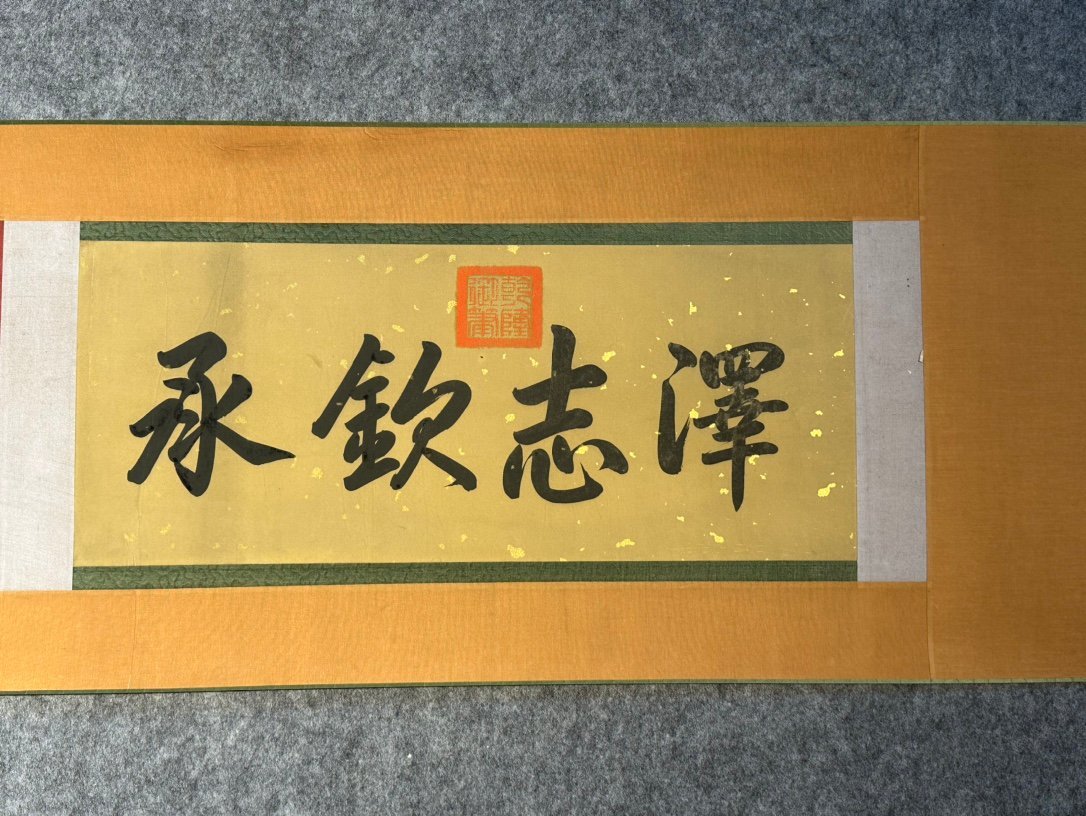 乾隆御筆
澤志欽承